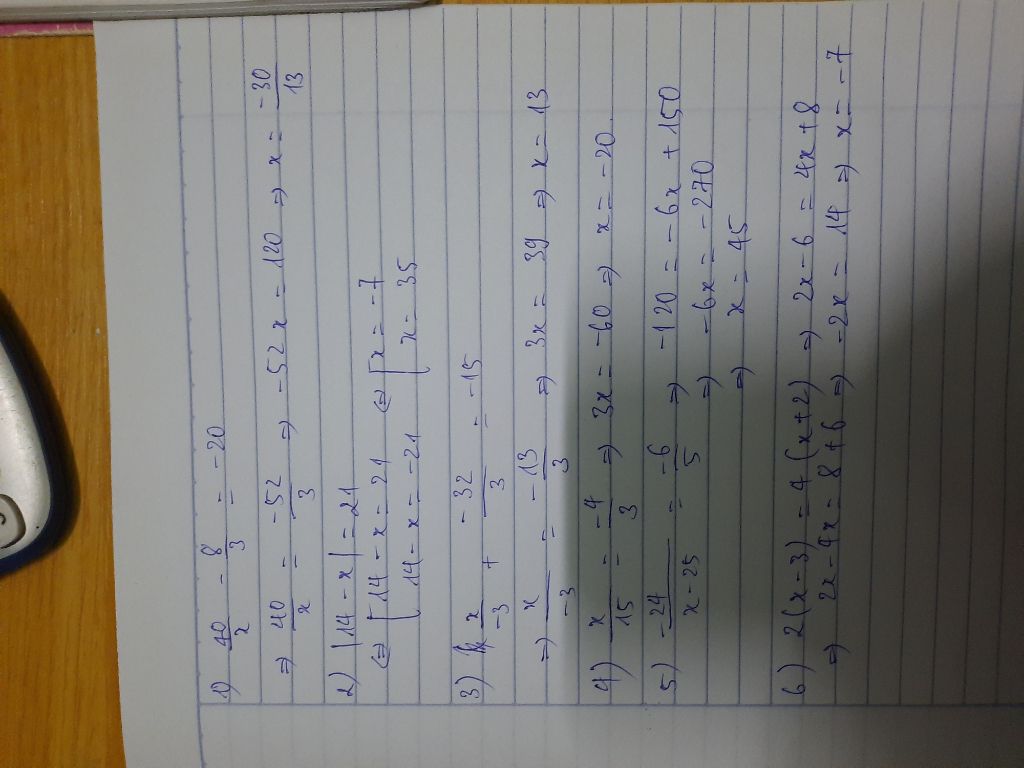 1) 40/x - 8/3 = -20
⇒ 40/x = -52/3 ⇒ -52x = 120 ⇒ x = -30/13
2) |14 - x| = 21
⇔ [14 - x = 21 ⇔ [x = -7
14 - x = -21 x = 35
3) x/-3 + -32/3 = -15
⇒ x/-3 = -13/3 ⇒ 3x = 39 ⇒ x = 13
4) x/15 = -4/3 ⇒ 3x = -60 ⇒ x = -20
5) -24/x - 25 = -6/5 ⇒ -120 = -6x + 150
⇒ -6x = -270
⇒ x = 45
6) 2(x - 3) = 4(x + 2) ⇒ 2x - 6 = 4x + 8
⇒ 2x - 4x = 8 + 6 ⇒ -2x = 14 ⇒ x = -7